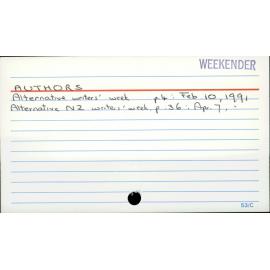 WEEKENDER
AUTHORS
Alternative writers' week p4 : Feb 10, 1991
Alternative NZ writers' week p 36 : Apr 7,
53/C